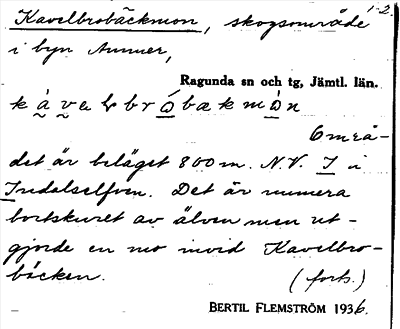 1-2.
Kavelbrobäckmon, skogsområde
i byn Ammer,
Ragunda sn och tg, Jämtl. län.
Områ-
det är beläget 800 m. N.V. I i
Indalselfven. Det är numera
bortskuret av älven men ut-
gjorde en mo invid Kavelbro-
bäcken. (forts.)
BERTIL FLEMSTRÖM 1936.